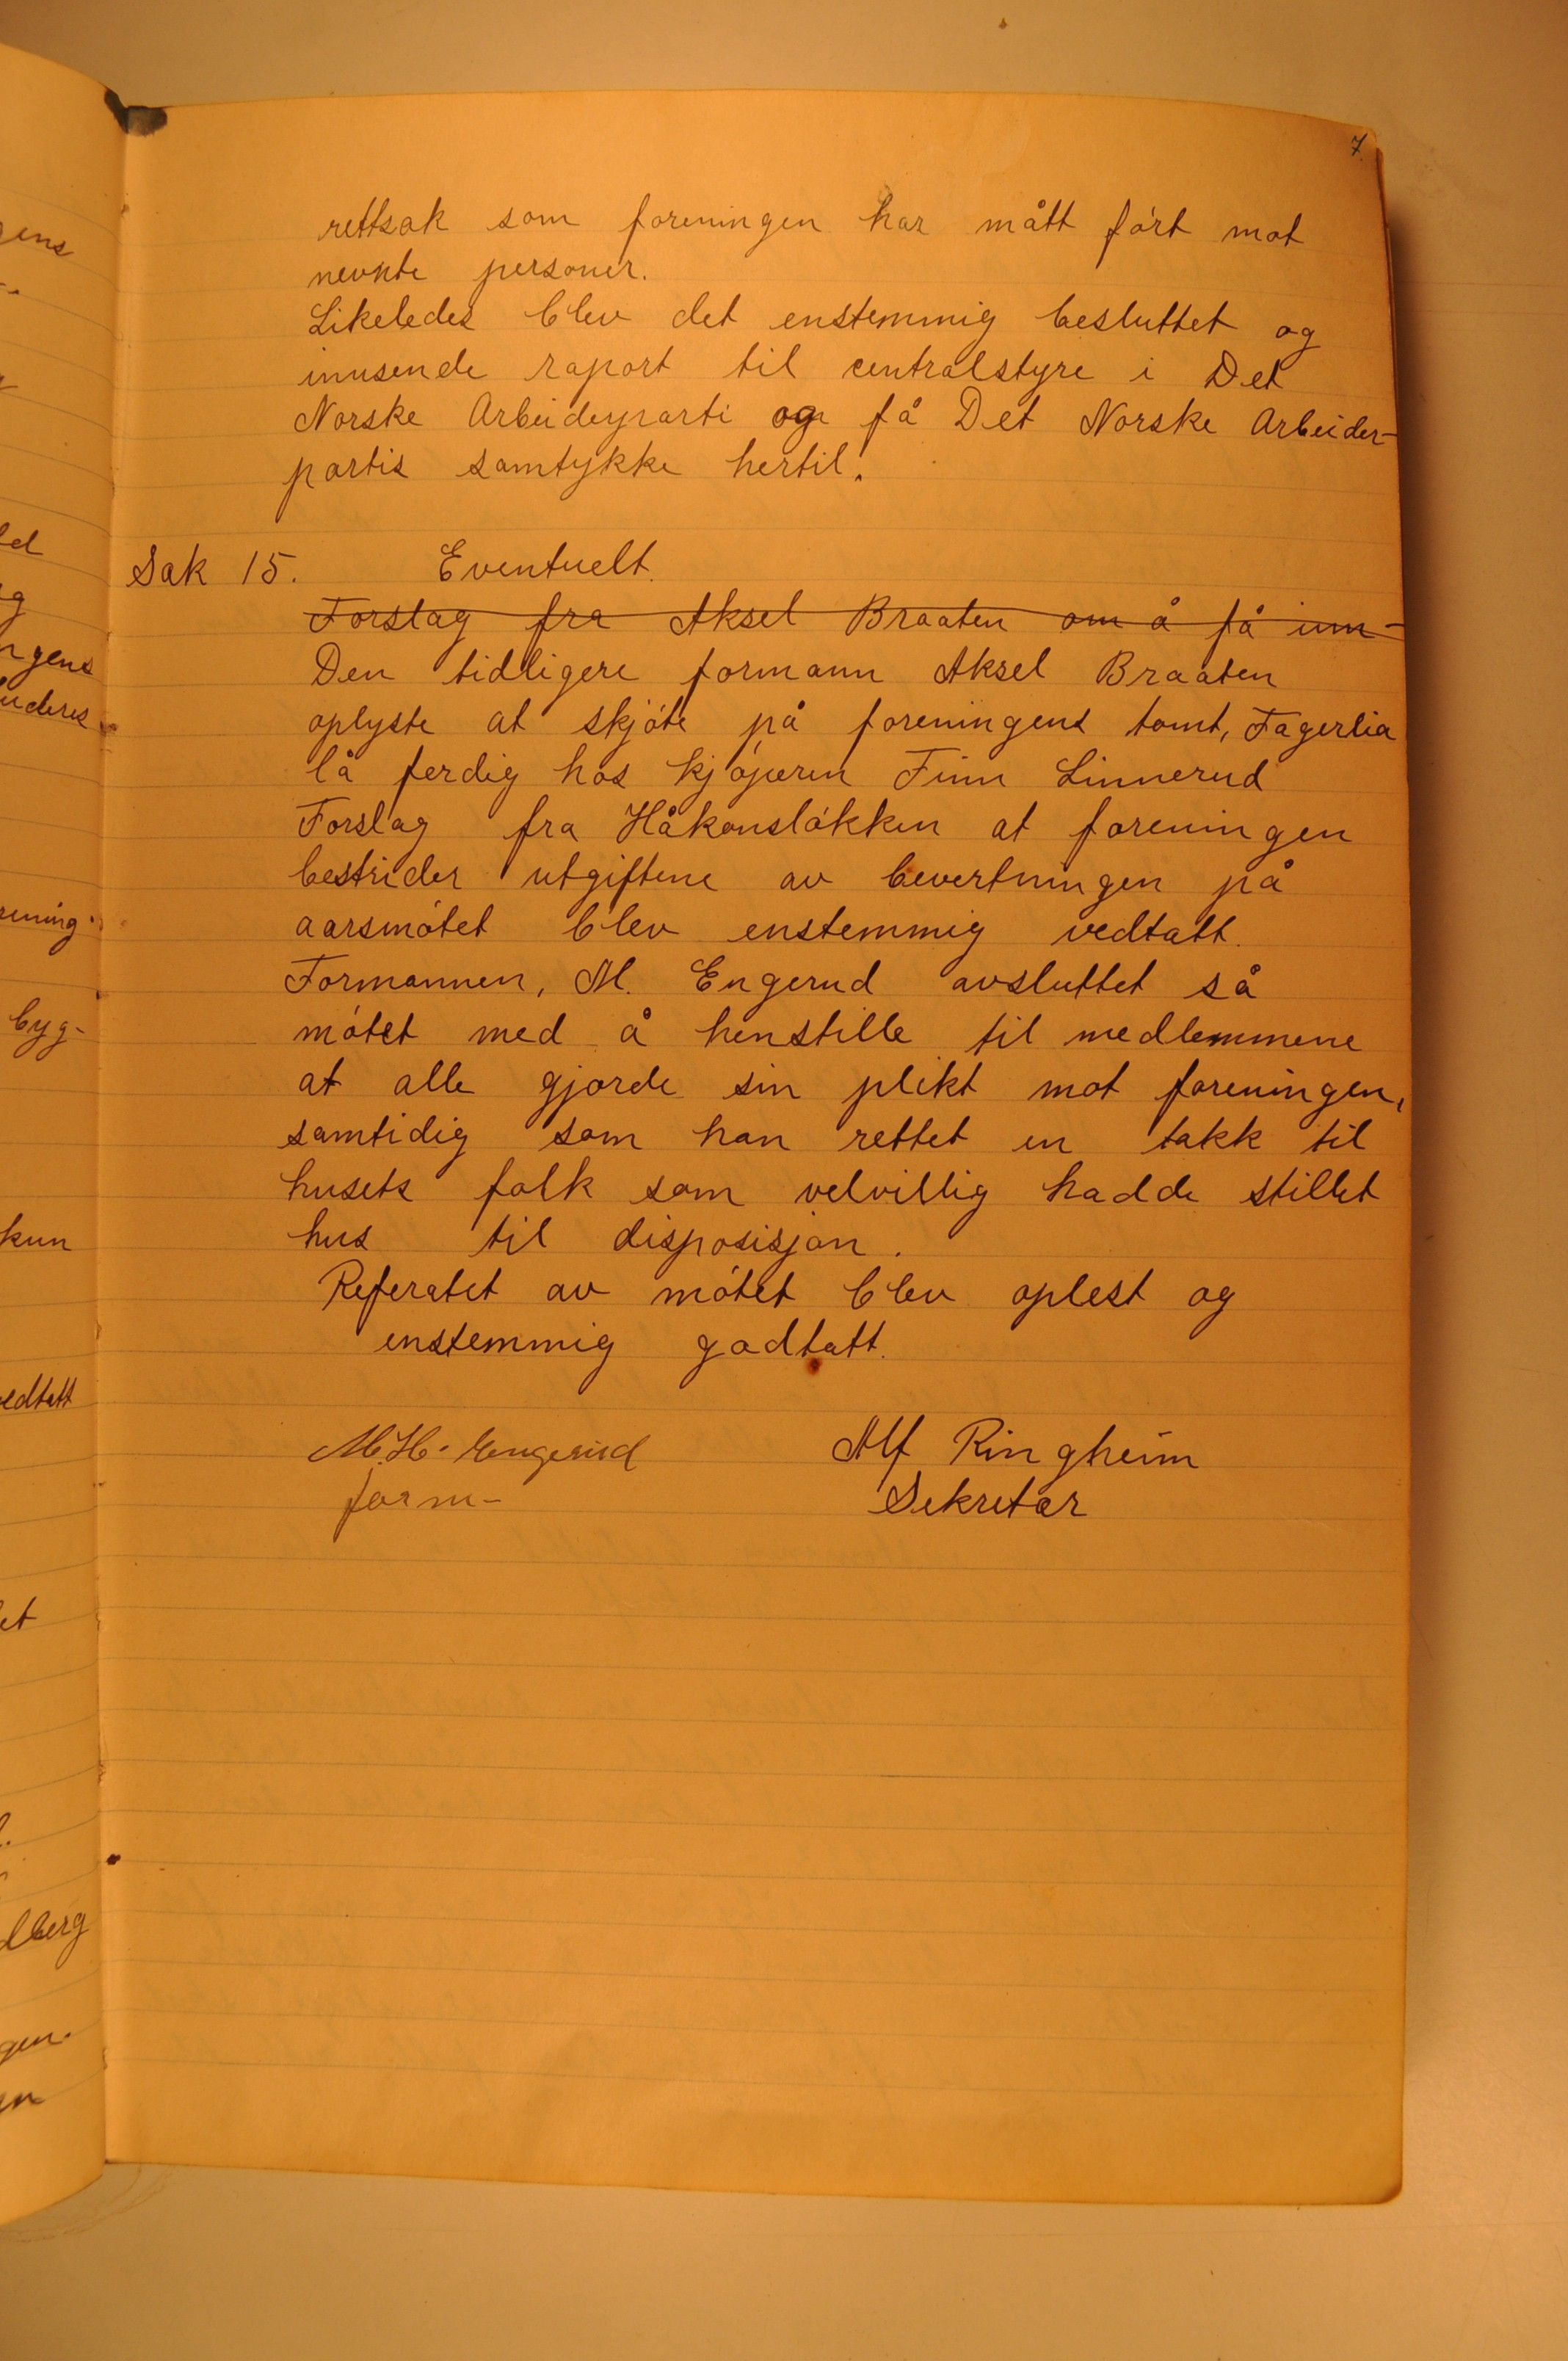 7.
rettsak som foreningen har mått ført mot
nevnte personer.
Likeledes blev det enstemmig besluttet og
innsende raport til centralstyre i Det
Norske Arbeiderparti og få Det Norske Arbeider-
partis samtykke hertil.
Sak 15. Eventuelt.
Forslag fra Aksel Braaten om å få inn-
Den tidligere formann Aksel Braaten
oplyste at skjøte på foreningens tomt, Fagerlia
lå ferdig hos kjøperen Finn Linnerud
Forslag fra Håkonsløkken at foreningen
bestrider utgiftene av bevertningen på
aarsmøtet blev enstemmig vedtatt.
Formannen, M. Engerud avsluttet så
møtet med å henstille til medlemmene
at alle gjorde sin plikt mot foreningen,
samtidig som han rettet en takk til
husets folk som velvillig hadde stillet
hus til disposisjon.
Referatet av møtet blev oplest og
enstemmig godtatt.
M.H. Engerud Alf Ringheim
form- Sekretær